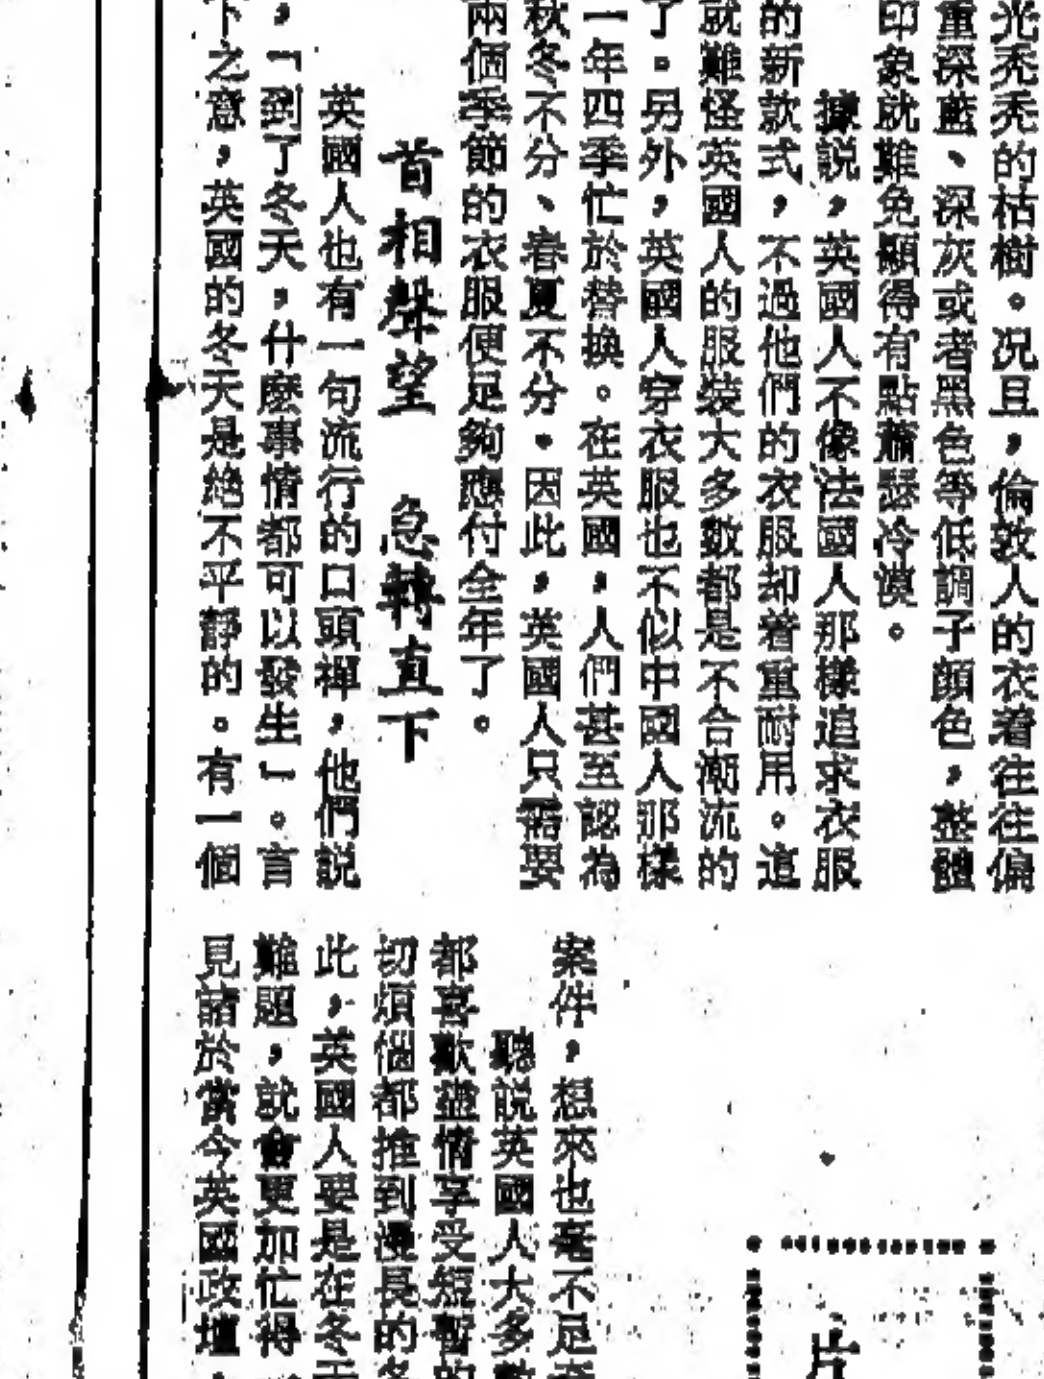 光秃秃的枯樹。况且，倫敦人的衣着往往偏
重深藍、深灰或者黑色等低調子顔色，整體
印象就難免顯得有點蕭瑟冷漠。
據説，英國人不像法國人那樣追求衣服
的新款式，不過他們的衣服却着重耐用。這
就難怪英國人的服裝大多數都是不合潮流的
了。另外，英國人穿衣服也不似中國人那樣
一年四季忙於替換。在英國，人們甚至認為
秋冬不分、春夏不分。因此，英國人只需要
兩個季節的衣服便足夠應付全年了。
首相聲望　急轉直下
英國人也有一句流行的口頭禪，他們説
，「到了冬天，什麽事情都可以發生」。言
下之意，英國的冬天是絶不平靜的。有一個
案件，想來也毫不足
聽説英國人大多數
都喜歡盡情享受短暫的
切煩惱都推到漫長的冬
此，英國人要是在冬天
難題，就會更加忙得
見諸於當今英國政壇，
片